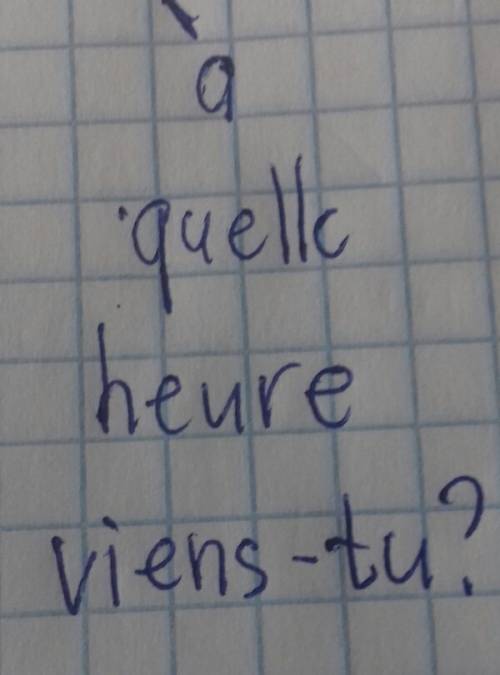 à
quelle
heure
viens-tu?